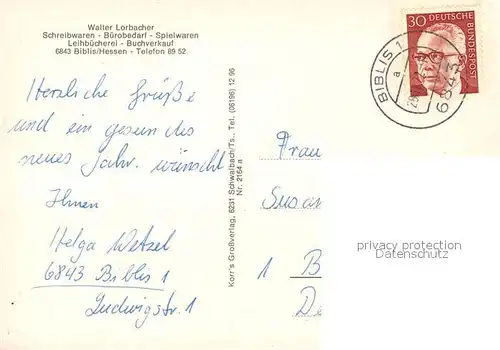 Walter Lorbacher
Schreibwaren - Bürobedarf - Spielwaren
Leihbücherei - Buchverkauf
6843 Biblis/Hessen - Telefon 89 52
Herzliche Grüße
und ein gesundes
neues Jahr. wünscht
Ihnen
Helga Wetzel
6843 Biblis 1
Ludwigstr. 1
Korr's Großverlag, 6231 Schwalbach/Ts., Tel. (06196) 12 96
Nr. 2164 a
30 DEUTSCHE BUNDESPOST
BIBLIS 1
a
6843
Frau
Susan
1 B
privacy protection
Datenschutz